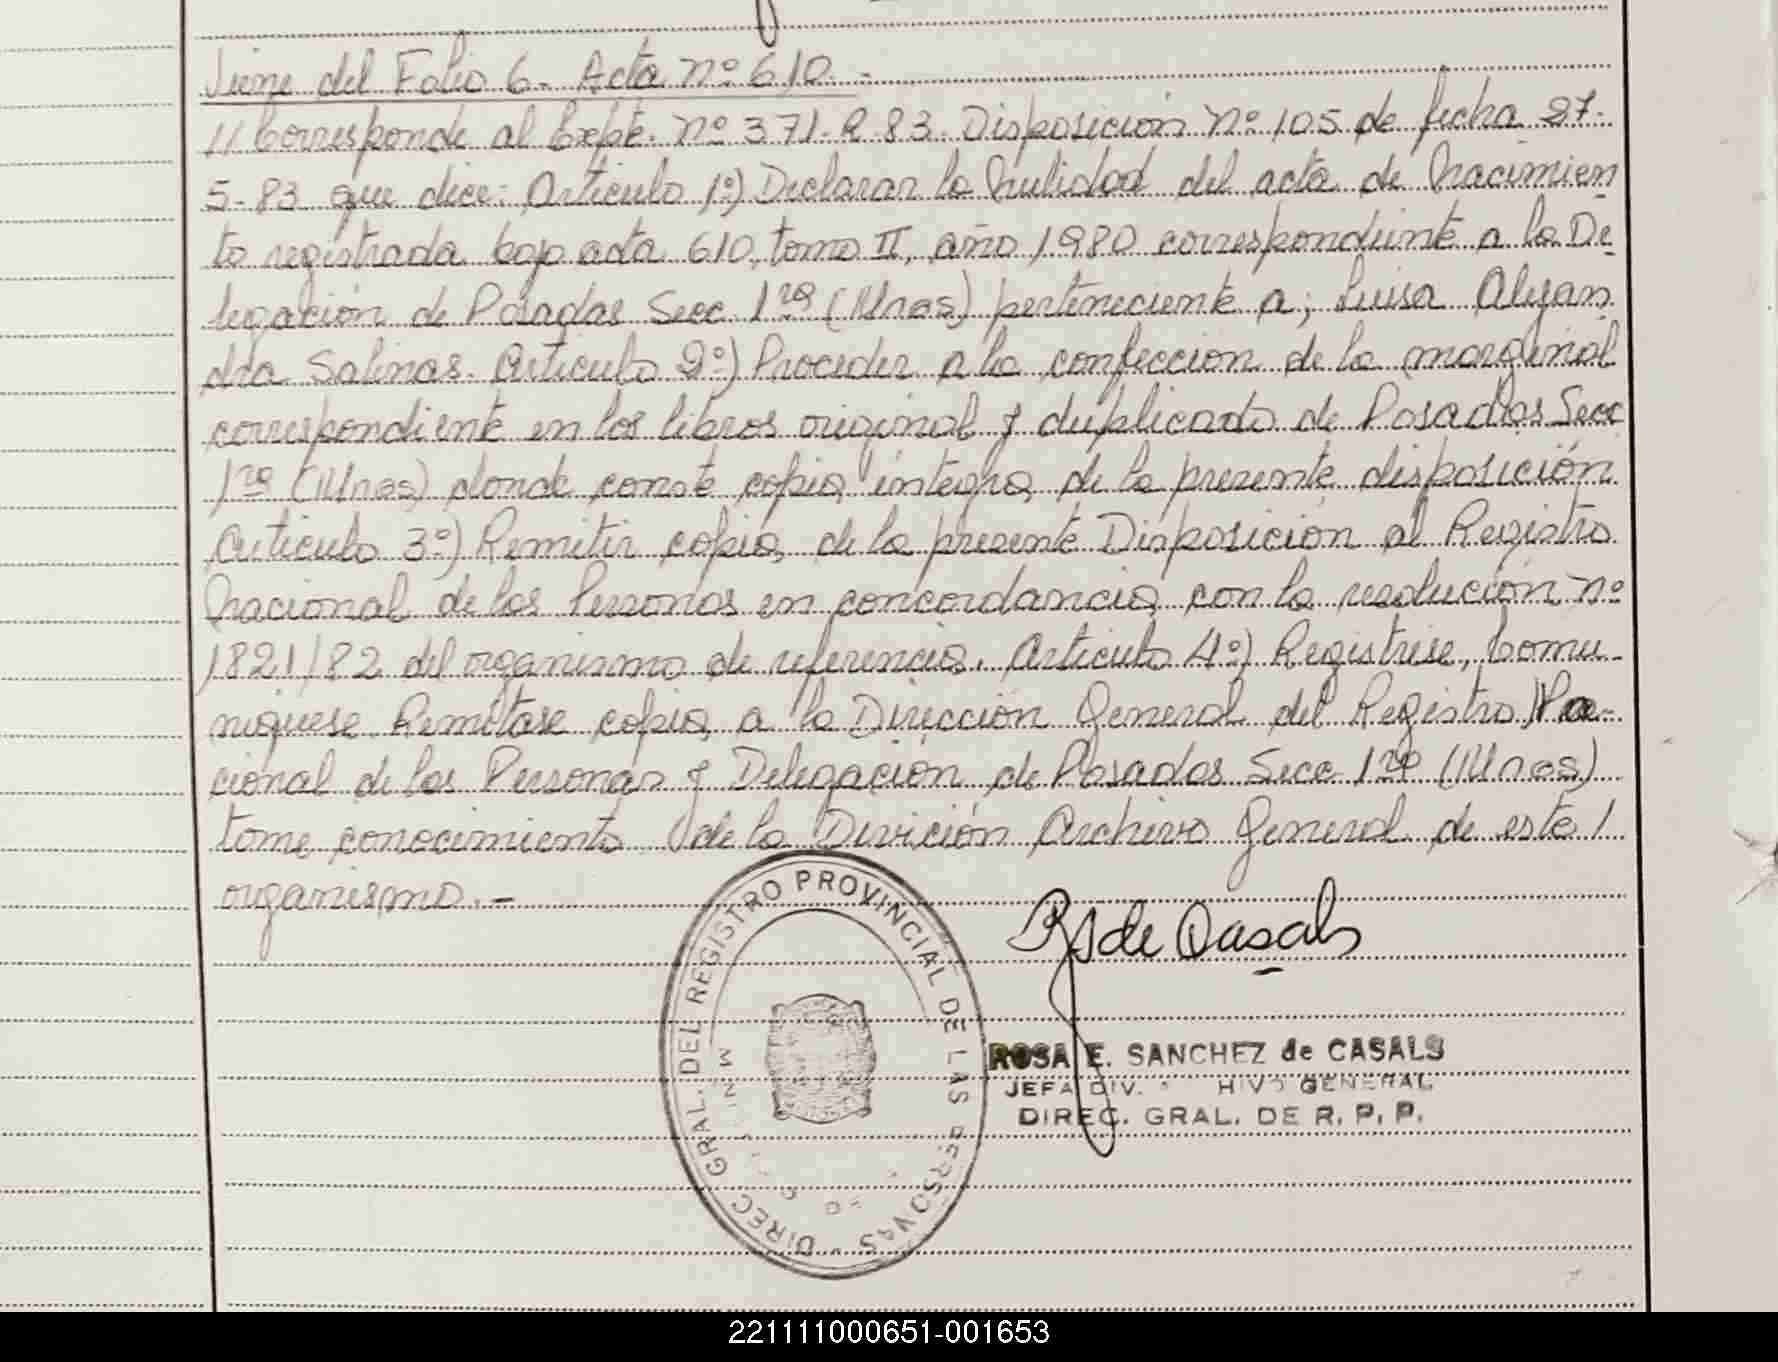 Viene del Folio 6- Acta nº 610.-
// Corresponde al Expte. nº 371-R-83- Disposición nº 105 de fecha 27-
5-83 que dice: Articulo 1º) Declarar la nulidad del acta de Nacimien
to registrada bajo acta 610, tomo II, año 1980 correspondiente a la De-
legación de Posadas Secc 1ra (Mnes) perteneciente a; Luisa Alejan
dra Salinas. Articulo 2º) Proceder a la confección de la marginal
correspondiente en los libros original y duplicado de Posadas Secc
1ra (Mnes) donde conste copia integra de la presente disposición
Articulo 3º) Remitir copia de la presente Disposición al Registro
Nacional de las Personas en concordancia con la resolución nº
1821/82 del organismo de referencia. Articulo 4º) Registrese, Comu-
niquese Remitase copia a la Dirección General del Registro Na-
cional de las Personas y Delegación de Posadas Secc 1ra (Mnes)
tome conocimiento de la División Archivo General de este /
organismo.-
DIREC GRAL. DEL REGISTRO PROVINCIAL DE LAS PERSONAS
R S de Casals
ROSA E. SANCHEZ de CASALS
JEFA DIV. HIVO GENERAL
DIREC. GRAL. DE R. P. P.
221111000651-001653